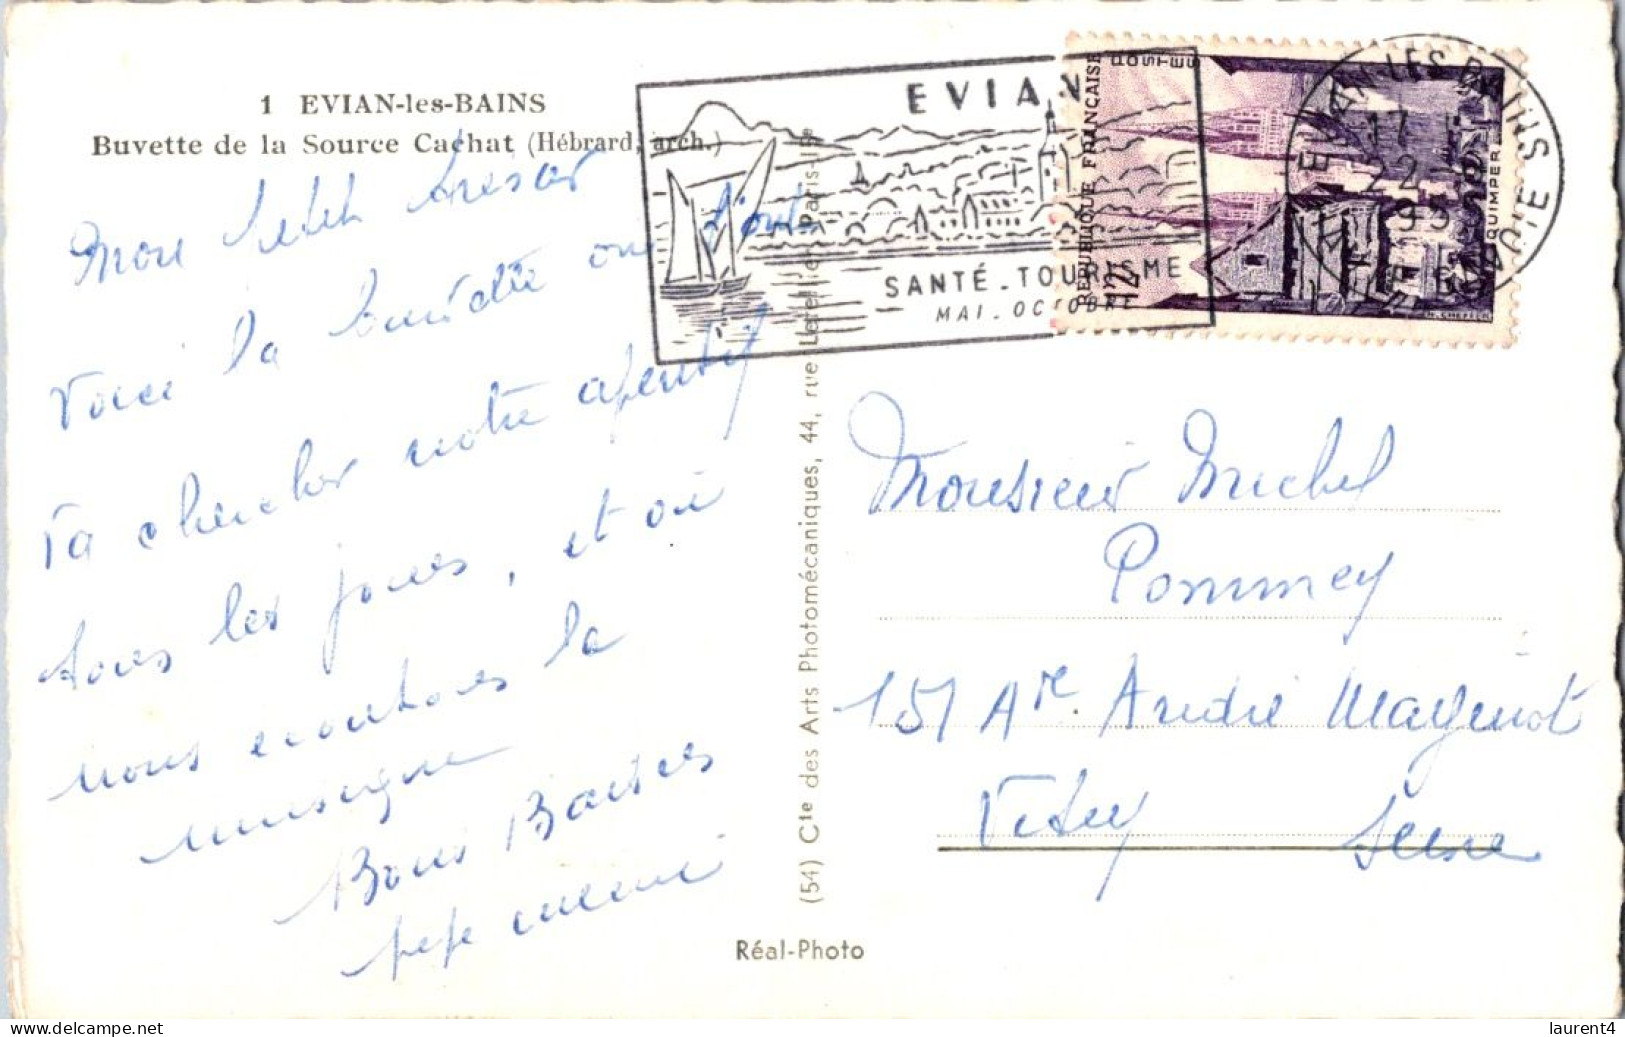 1 EVIAN-les-BAINS
Buvette de la Source Cachat (Hébrard, arch.)
Mon petit tresor
Voici la buvette ou l'on
va chercher notre aperitif
tous les jours, et où
nous ecoutons la
musique
Bons Baisers
pepe meme
EVIAN
SANTÉ_TOURISME
MAI_OCTOBRE
RÉPUBLIQUE FRANÇAISE
POSTES
12F
QUIMPER
H. CHEFFER
EVIAN LES BAINS
17
22
195
(54) Cte des Arts Photomécaniques, 44, rue Letellier, Paris-15e
Réal-Photo
Monsieur Michel
Pommey
151 Are. André Maginot
Vitry Seine
laurent4